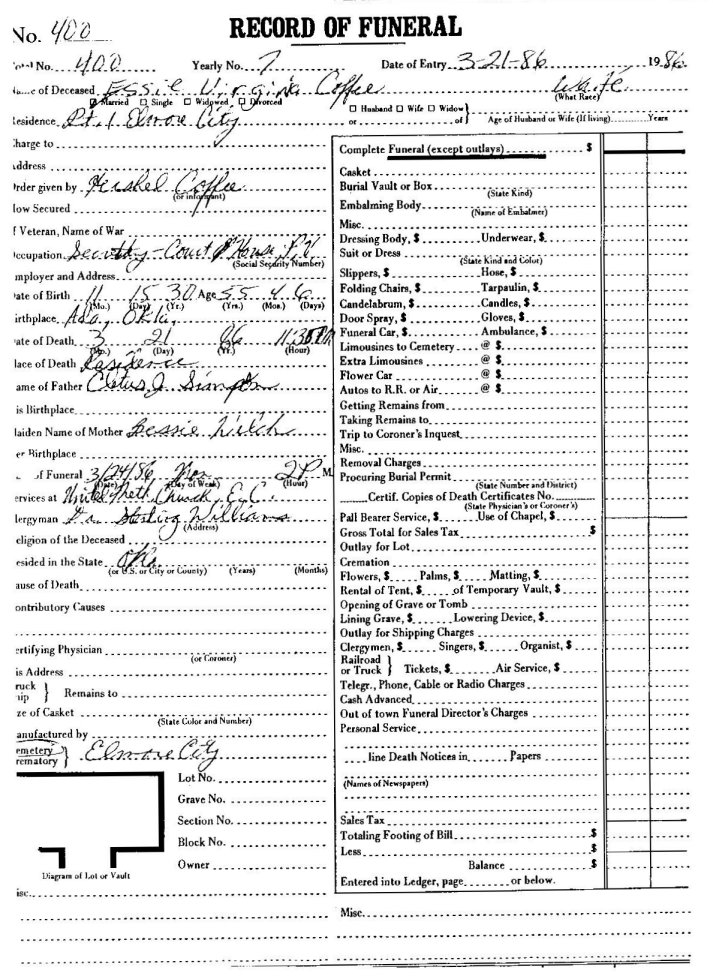 No. 400
RECORD OF FUNERAL
Total No. 400 Yearly No. 7 Date of Entry 3-21-86 1986
Name of Deceased Essie Virginia Coffee White (What Race)
Married Single Widowed Divorced Husband Wife Widow
Residence Rt. 1 Elmore City or of Age of Husband or Wife (If living) Years
Charge to
Address
Order given by Hershel Coffee
(or informant)
How Secured
If Veteran, Name of War
Occupation Security - Court House P.V.
(Social Security Number)
Employer and Address
Date of Birth 11 15 30 Age 55 4 6
(Mo.) (Day) (Yr.) (Yrs.) (Mos.) (Days)
Birthplace Ada, Okla.
Date of Death 3 21 86 11:30 PM
(Mo.) (Day) (Yr.) (Hour)
Place of Death Residence
Name of Father Cletus J.
His Birthplace
Maiden Name of Mother Bessie
Her Birthplace
of Funeral 3/24/86 Mon 2 P M.
(Date) (Day of Week) (Hour)
Services at United Meth. Church, E.C.
Clergyman Sterling Williams
(Address)
Religion of the Deceased
Resided in the State
(or U.S. or City or County) (Years) (Months)
Cause of Death
Contributory Causes
Certifying Physician
(or Coroner)
His Address
Truck
Ship } Remains to
Size of Casket
(State Color and Number)
Manufactured by
Cemetery
Crematory } Elmore City
Lot No.
Grave No.
Section No.
Block No.
Owner
Diagram of Lot or Vault
Misc.
Complete Funeral (except outlays) $
Casket
Burial Vault or Box
(State Kind)
Embalming Body
(Name of Embalmer)
Misc.
Dressing Body, $ Underwear, $
Suit or Dress
(State Kind and Color)
Slippers, $ Hose, $
Folding Chairs, $ Tarpaulin, $
Candelabrum, $ Candles, $
Door Spray, $ Gloves, $
Funeral Car, $ Ambulance, $
Limousines to Cemetery @ $
Extra Limousines @ $
Flower Car @ $
Autos to R.R. or Air @ $
Getting Remains from
Taking Remains to
Trip to Coroner's Inquest
Misc.
Removal Charges
Procuring Burial Permit
(State Number and District)
Certif. Copies of Death Certificates No.
(State Physician's or Coroner's)
Pall Bearer Service, $ Use of Chapel, $
Gross Total for Sales Tax $
Outlay for Lot
Cremation
Flowers, $ Palms, $ Matting, $
Rental of Tent, $ of Temporary Vault, $
Opening of Grave or Tomb
Lining Grave, $ Lowering Device, $
Outlay for Shipping Charges
Clergymen, $ Singers, $ Organist, $
Railroad
or Truck } Tickets, $ Air Service, $
Telegr., Phone, Cable or Radio Charges
Cash Advanced
Out of town Funeral Director's Charges
Personal Service
line Death Notices in Papers
(Names of Newspapers)
Sales Tax
Totaling Footing of Bill $
Less $
Balance $
Entered into Ledger, page or below.
Misc.